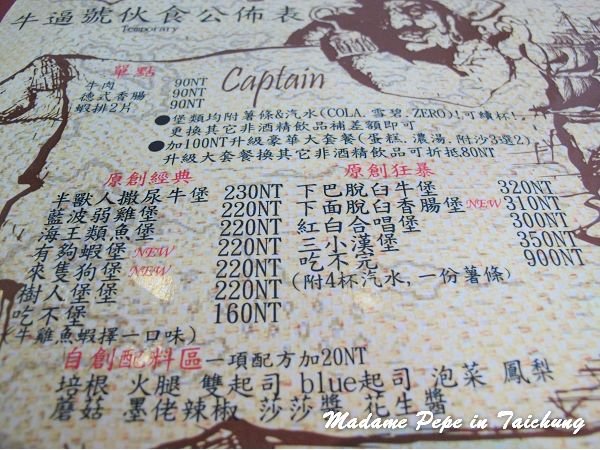 牛逼號伙食公佈表
Temporary
單點
牛肉 90NT
德式香腸 90NT
蝦排2片 90NT
Captain
●堡類均附薯條&汽水(COLA, 雪碧, ZERO)!可續杯!
更換其它非酒精飲品補差額即可
●加100NT升級豪華大套餐(蛋糕, 濃湯, 附沙3選2)
升級大套餐換其它非酒精飲品可折抵80NT
原創經典
半獸人撒尿牛堡 230NT
藍波弱雞堡 220NT
海王類魚堡 220NT
有夠蝦堡 NEW 220NT
來隻狗堡 NEW 220NT
樹人堡堡 220NT
吃不堡 160NT
(牛雞魚蝦擇一口味)
原創狂暴
下巴脫臼牛堡 320NT
下面脫臼香腸堡 NEW 310NT
紅白合唱堡 300NT
三小漢堡 350NT
吃不完 900NT
(附4杯汽水, 一份薯條)
自創配料區 一項配方加20NT
培根 火腿 雙起司 blue起司 泡菜 鳳梨
蘑菇 墨佬辣椒 莎莎醬 花生醬
Madame Pepe in Taichung